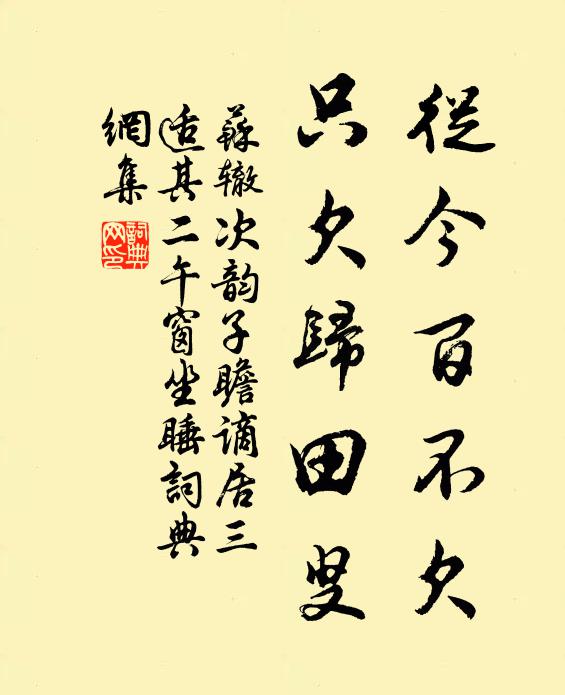 從今百不欠
只欠歸田叟
蘇辙次韵子瞻谪居三
适其二午窗坐睡詞典
網集
詞典
网印